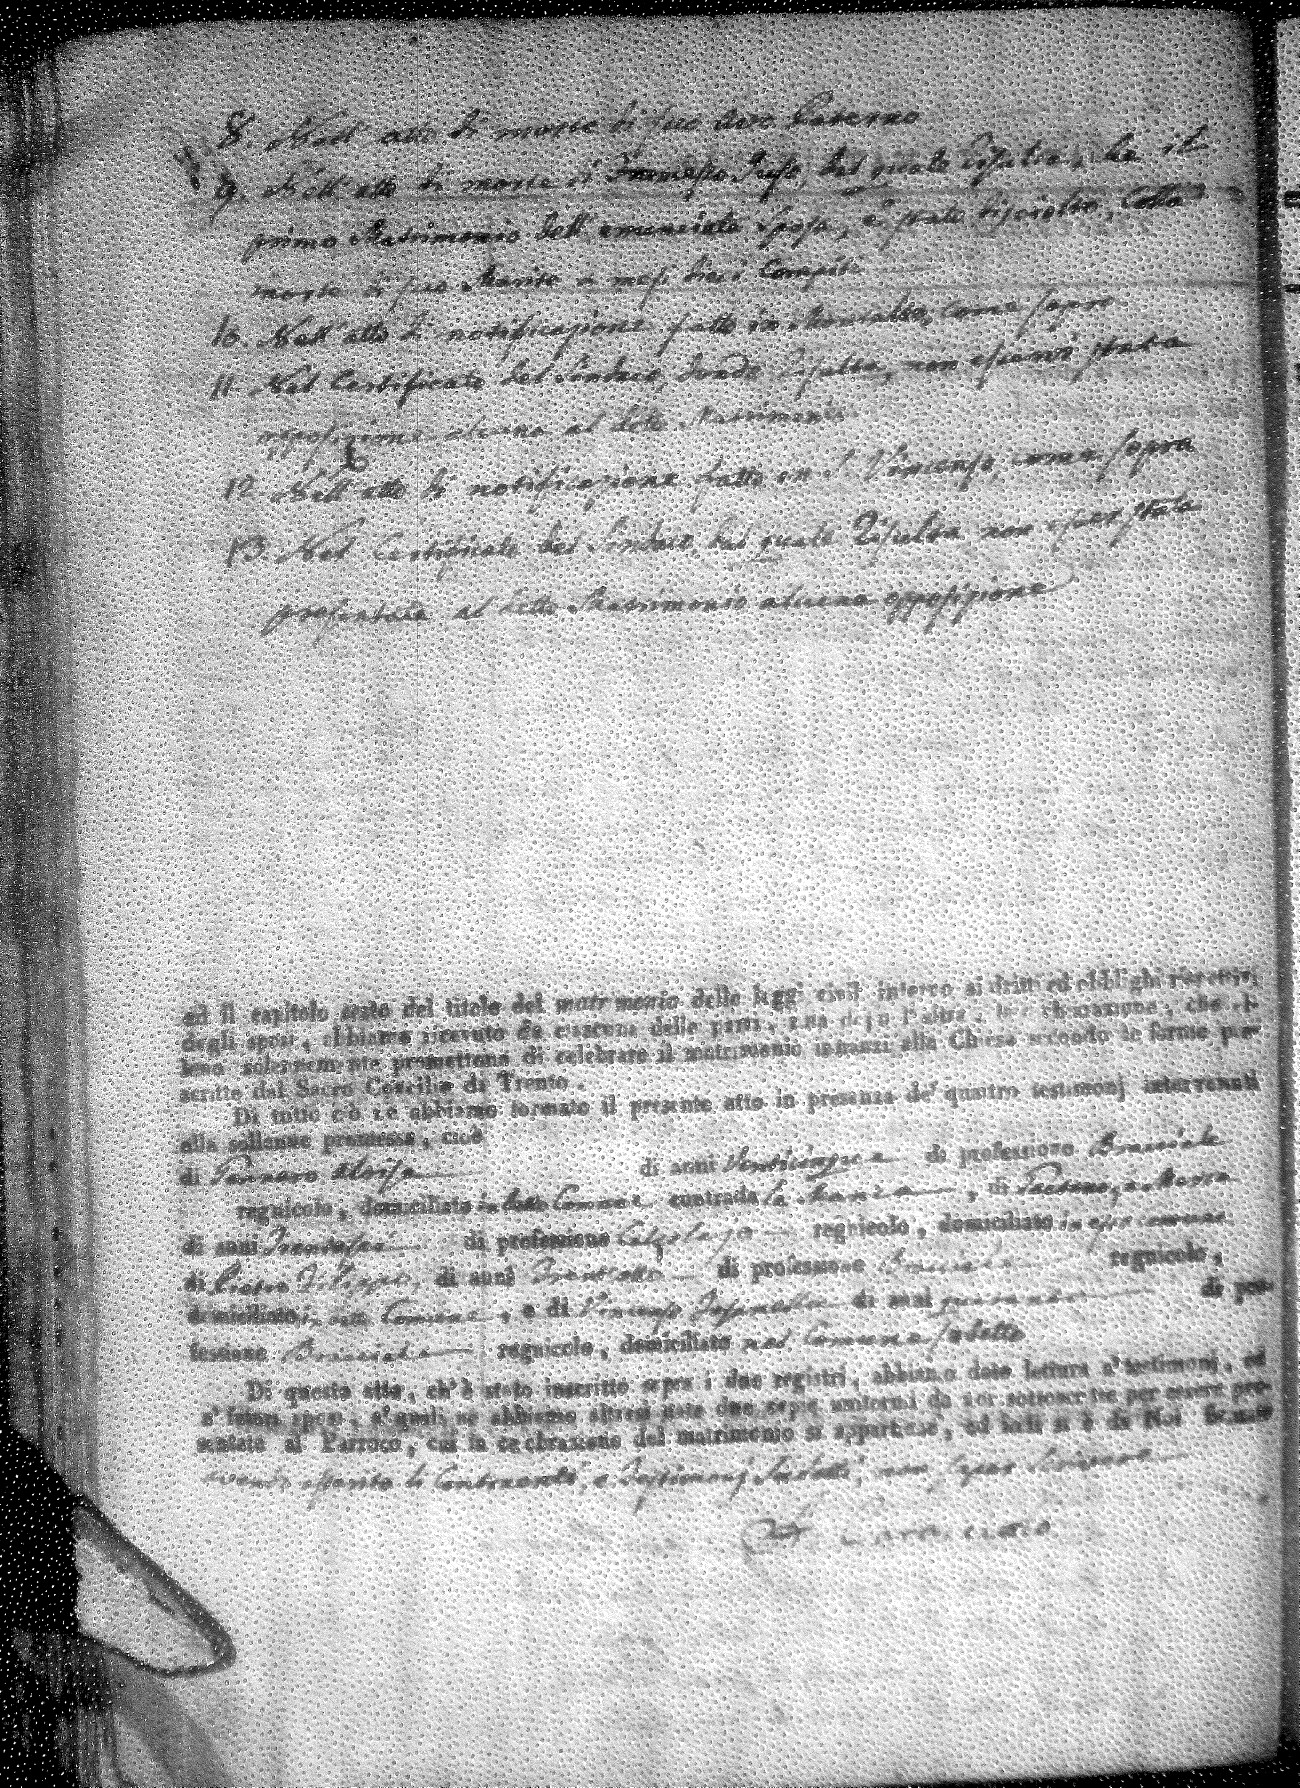 8. Nell' atto di morte di suo Avo Paterno
9. Nell' atto di morte di Francesco, dal quale risulta, che il
primo Matrimonio dell' enunciata sposa, è stato disciolto, colla
morte di suo Marito a mesi dieci compiti
10. Nell' atto di notificazione fatto in, come sopra
11. Nel Certificato del Sindaco, donde risulta, non esservi stata
opposizione alcuna al detto Matrimonio
12. Nell' atto di notificazione fatto in S. Vincenzo, come sopra
13. Nel Certificato del Sindaco, dal quale risulta non esser stata
presentata al detto Matrimonio alcuna opposizione
ed il capitolo sesto del titolo del matrimonio delle leggi civili intorno ai dritti ed obblighi rispettivi
degli sposi, abbiamo ricevuto da ciascuna delle parti, una dopo l'altra, la dichiarazione, che el-
leno solennemente promettono di celebrare il matrimonio innanzi alla Chiesa secondo le forme pre-
scritte dal Sacro Concilio di Trento.
Di tutto ciò ne abbiamo formato il presente atto in presenza de' quattro testimonj intervenuti
alla sollenne promessa, cioè
di Gennaro Aloisa di anni venticinque di professione Bracciale
regnicolo, domiciliato in detto Comune contrada la, di
di anni trentasei di professione Calzolajo regnicolo, domiciliato in esso comune
di Pietro Filippo, di anni trentotto di professione Bracciale regnicolo,
domiciliato in Comune, e di Vincenzo di anni di pro-
fessione Bracciale regnicolo, domiciliato nel Comune sudetto
Di questo atto, ch'è stato inscritto sopra i due registri, abbiamo dato lettura a' testimonj, ed
a' futuri sposi, a' quali ne abbiamo altresì date due copie uniformi da noi sottoscritte per essere pre-
sentate al Parroco, cui la celebrazione del matrimonio si appartiene, ed indi si è da Noi firmato
avendo asserito li Contraenti, e Testimonj sudetti, non saper scrivere